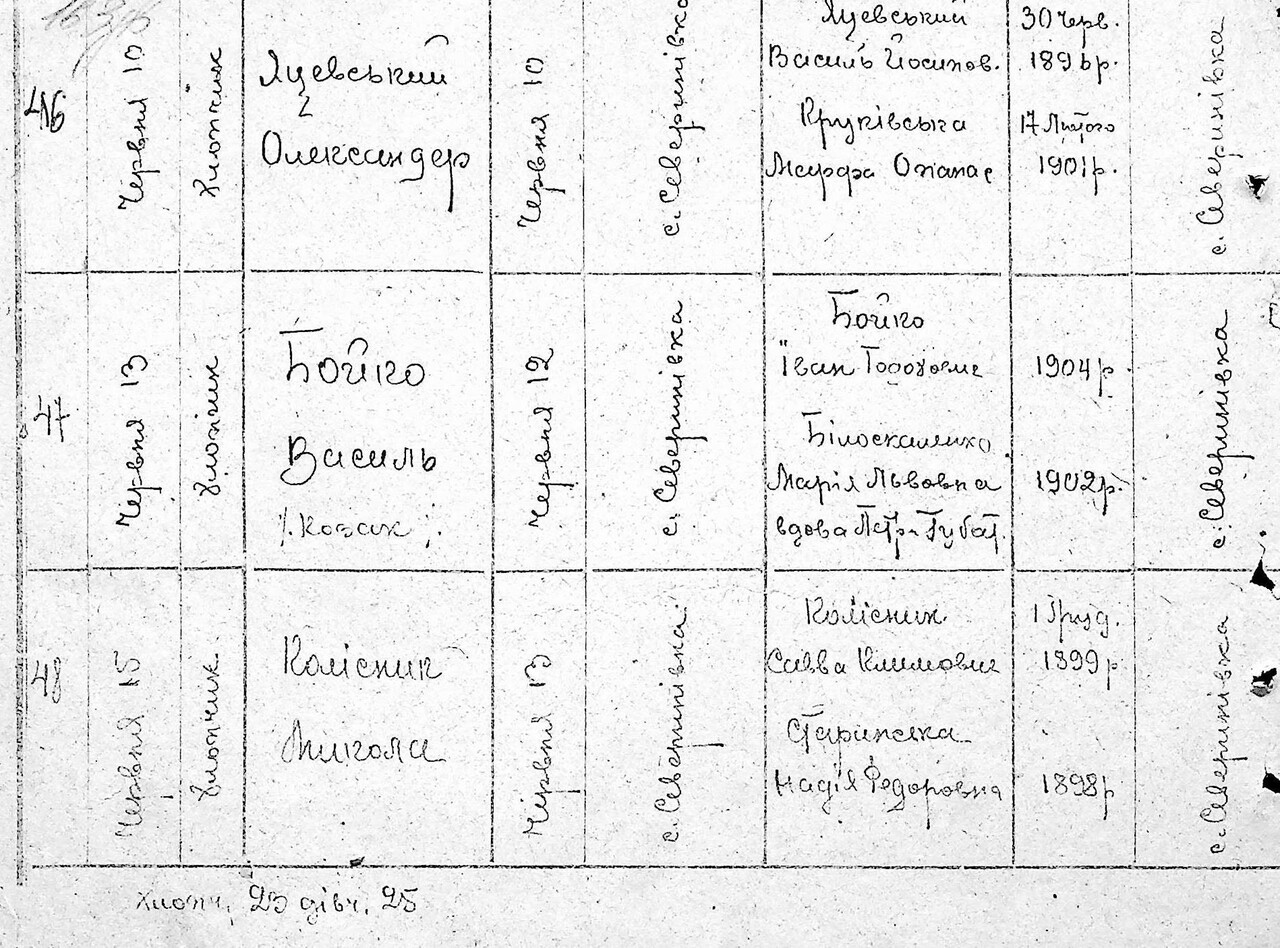 46
Червня 10
Хлопчик
Яцевський
Олександер
Червня 10
с. Северинівка
Яцевський
Василь Йосипов.
Круківська
Марфа Опанас
30 Черв.
1896р.
17 Лютого
1901р.
с. Северинівка
47
Червня 13
Хлопчик
Бойко
Василь
/. Козак ./.
Червня 12
с. Северинівка
Бойко
Іван Тододович
Білоскаленко
Марія Львовна
вдова Петра Губат.
1904р.
1902р.
с. Северинівка
48
Червня 15
Хлопчик.
Колісник
Микола
Червня 13
с. Северинівка
Колісник.
Савва Климович
Старинська
Надія Федоровна
1 Груд.
1899р
1898р
с. Северинівка
хлопч, 23 дівч. 25